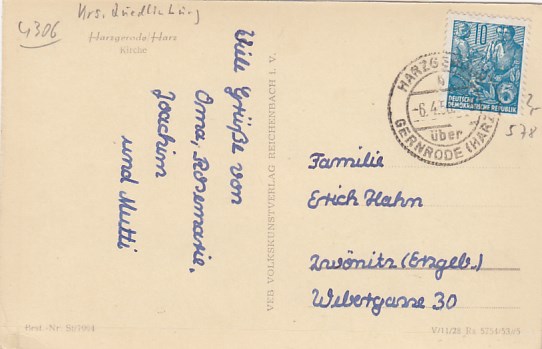 4306
Krs. Quedlinburg
Harzgerode/Harz
Kirche
Viele Grüße von
Oma, Rosemarie,
Joachim
und Mutti
VEB VOLKSKUNSTVERLAG REICHENBACH I. V.
10
DEUTSCHE
DEMOKRATISCHE REPUBLIK
-6.4.
über
GERNRODE (HARZ)
578
Familie
Erich Hahn
Zwönitz (Erzgeb.)
Webergasse 30
Best.-Nr.
V/11/28